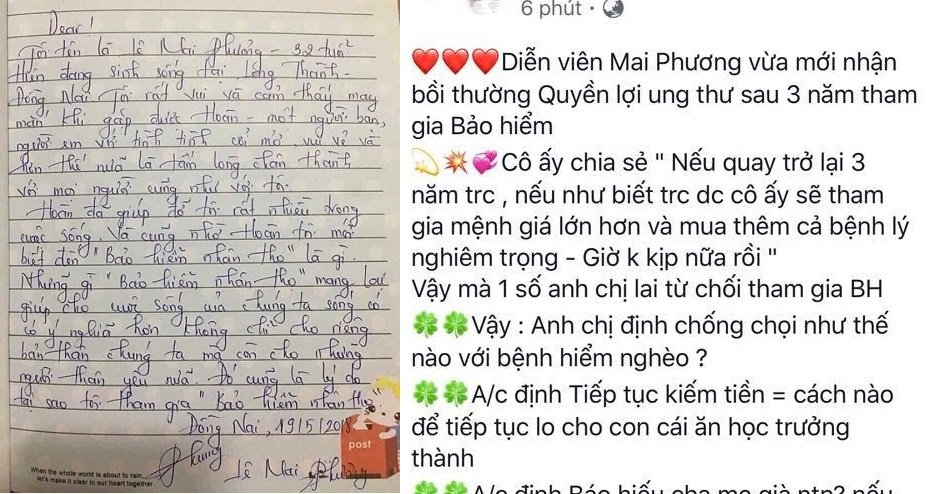 Dear!
Tôi tên là Lê Mai Phương - 32 tuổi
Hiện đang sinh sống tại Long Thành -
Đồng Nai. Tôi rất vui và cảm thấy may
mắn khi gặp được Hoàn - một người bạn,
người em với tính tình cởi mở, vui vẻ và
hơn thế nữa là tấm lòng chân thành
với mọi người cũng như với tôi.
Hoàn đã giúp đỡ tôi rất nhiều trong
cuộc sống. Và cũng nhờ Hoàn tôi mới
biết đến "Bảo hiểm nhân thọ" là gì.
Những gì "Bảo hiểm nhân thọ" mang lại
giúp cho cuộc sống của chúng ta sống có
có ý nghĩa hơn không chỉ cho riêng
bản thân chúng ta mà còn cho những
người thân yêu nữa. Đó cũng là lý do
tại sao tôi tham gia "Bảo hiểm nhân thọ"
Đồng Nai, 19/5/2018
post
Phương
Lê Mai Phương
When the whole world is about to rain,
let's make it clear in our heart together.
6 phút ·
❤❤❤Diễn viên Mai Phương vừa mới nhận
bồi thường Quyền lợi ung thư sau 3 năm tham
gia Bảo hiểm
💫💥💞Cô ấy chia sẻ " Nếu quay trở lại 3
năm trc , nếu như biết trc dc cô ấy sẽ tham
gia mệnh giá lớn hơn và mua thêm cả bệnh lý
nghiêm trọng - Giờ k kịp nữa rồi "
Vậy mà 1 số anh chị lai từ chối tham gia BH
🍀🍀Vậy : Anh chị định chống chọi như thế
nào với bệnh hiểm nghèo ?
🍀🍀A/c định Tiếp tục kiếm tiền = cách nào
để tiếp tục lo cho con cái ăn học trưởng
thành
🍀🍀A/c định Báo hiếu cha mẹ già ntn? nếu